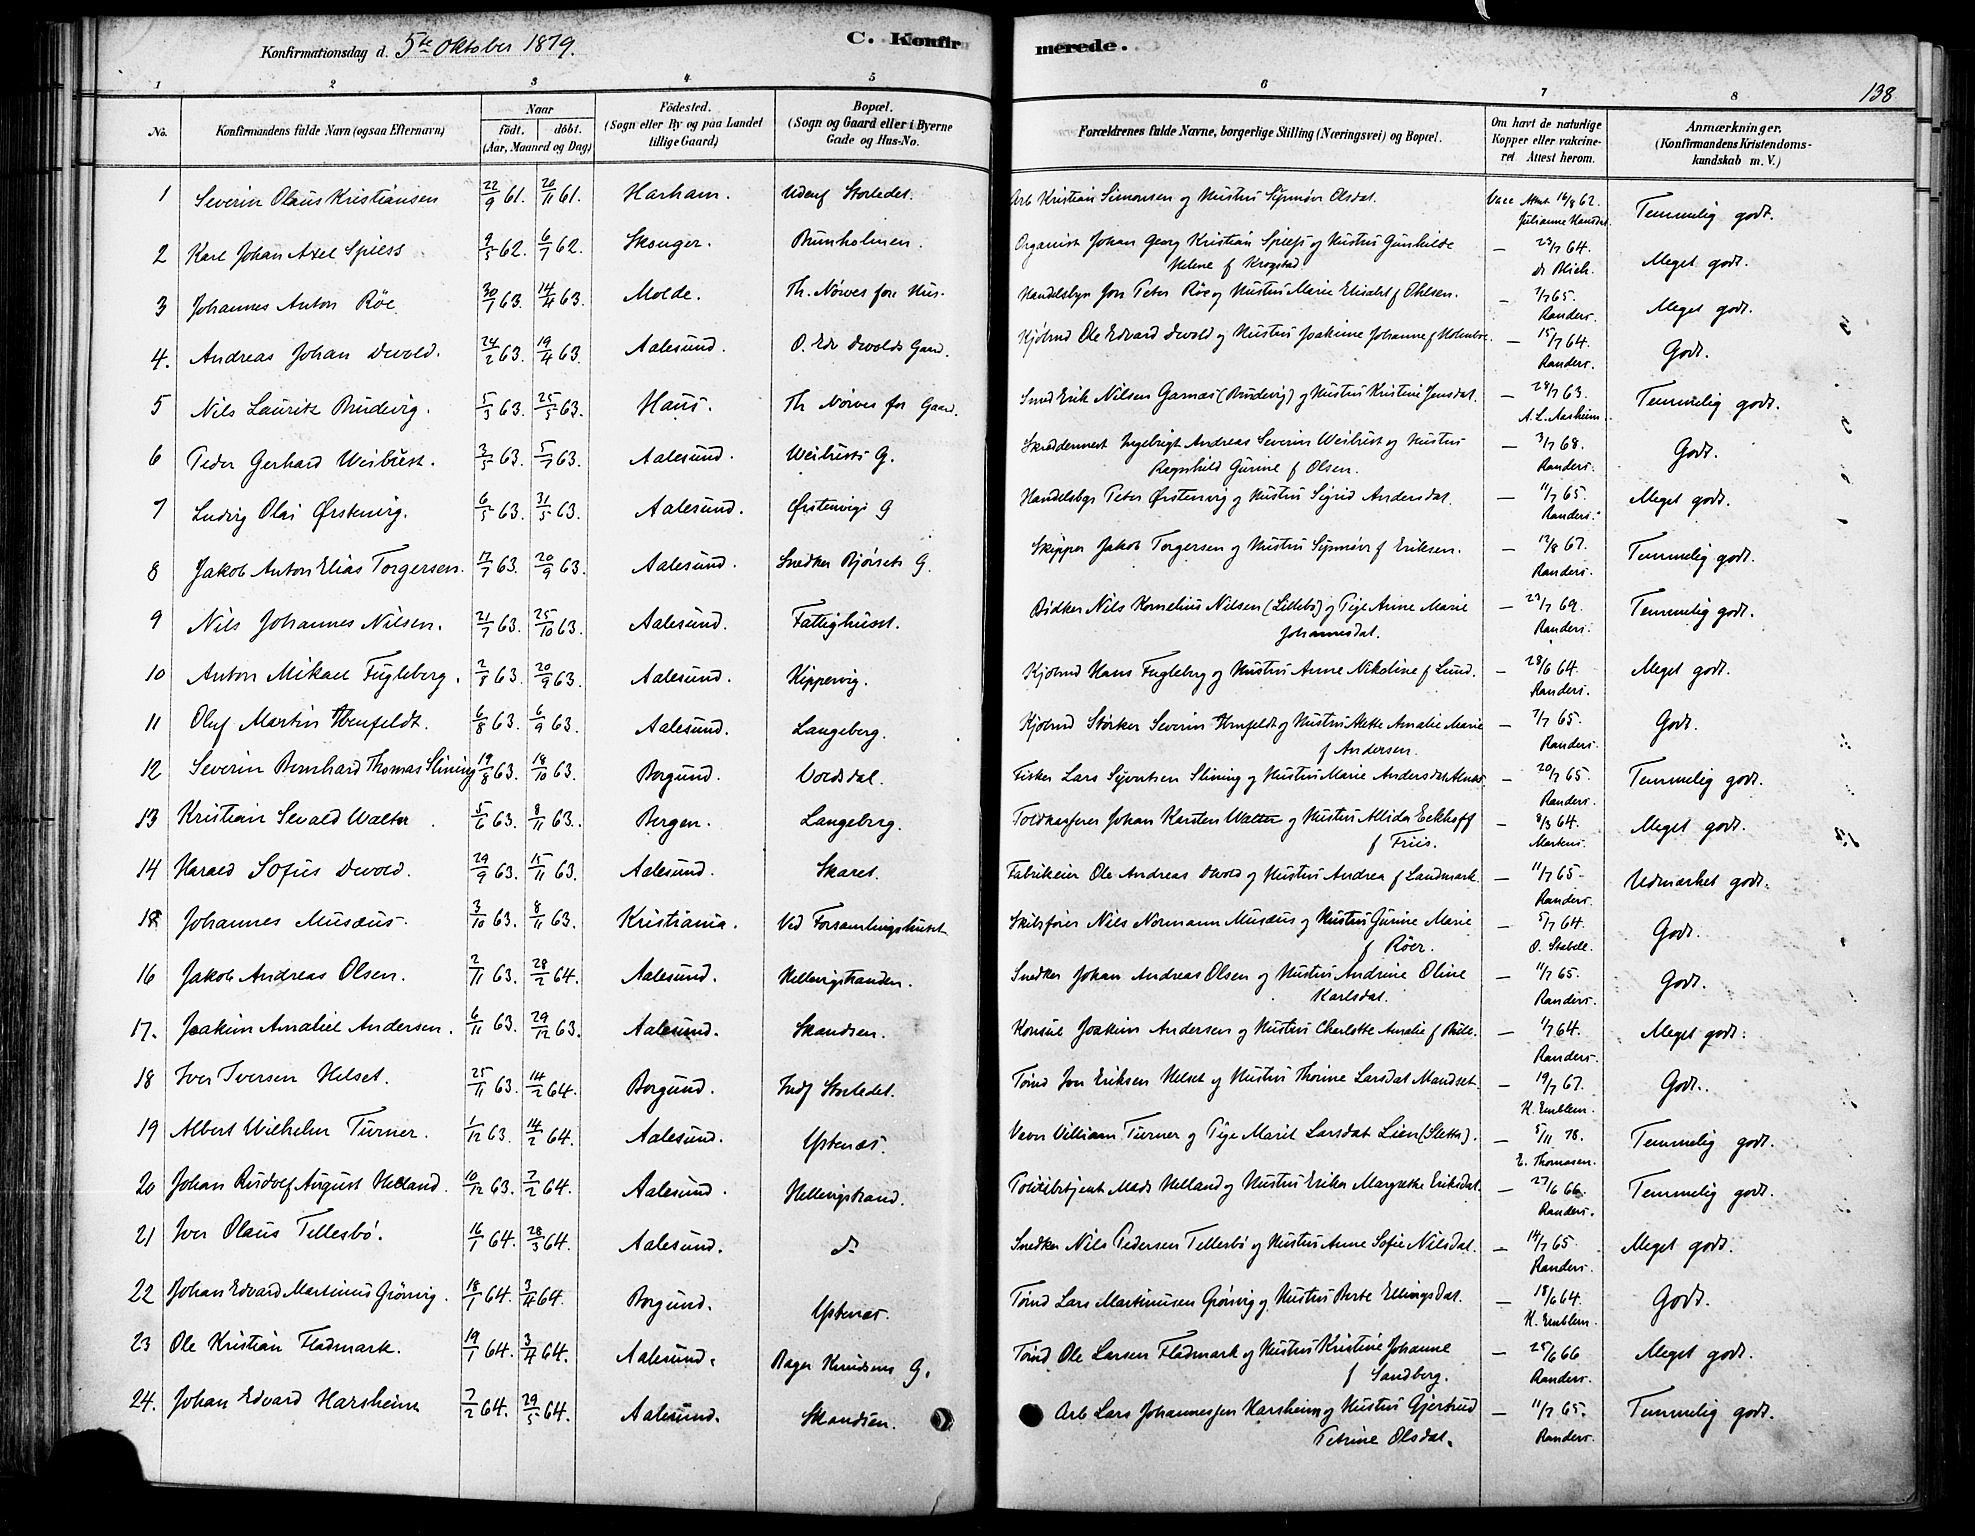 Konfirmationsdag d. 5te Oktober 1879.
C. Konfirmerede.
138
1 2 3 4 5 6 7 8
No. Konfirmandens fulde Navn (ogsaa Efternavn) Naar født. døbt. (Aar, Maaned og Dag) Fødested. (Sogn eller By og paa Landet tillige Gaard) Bopæl. (Sogn og Gaard eller i Byerne Gade og Hus-No. Forældrenes fulde Navne, borgerlige Stilling (Næringsvei) og Bopæl. Om havt de naturlige Kopper eller vakcineret Attest herom. Anmærkninger. (Konfirmandens Kristendomskundskab m. V.)
1 Severin Olaus Kristiansen 22/9 61. 20/11 61. Harham. Udenf Storledet. Arb Kristian Simonsen og Hustru Synnøv Olsdat. Vacc Attest 16/8 62. Temmelig godt.
Julianne Hansdat
2 Karl Johan Axel Spiess 9/5 62. 6/7 62. Skonger. Bunholmen. Organist Johan Georg Kristian Spiess og Hustru Gunhilde — 23/7 64. Meget godt.
Helene f Krogstad. dr Blich.
3 Johannes Anton Røe 30/1 63. 14/4 63. Molde. Th. Nørves fore Hus. Handelsbyr Jon Peter Røe og Hustru Marie Elisabet f Ohlsen. — 7/7 65. Meget godt.
Randers.
4. Andreas Johan Devold. 24/2 63. 19/4 63. Aalesund. O. Edv Devolds Gaard. Kjøbmd Ole Edvard Devold og Hustru Joakime Johanne f Holmboe. — 15/7 64. Godt.
Randers.
5 Nils Lauritz Brudevig. 5/3 63. 25/5 63. Haus. Th Nørves for Gaard. Smed Erik Nilsen Garnæs (Brudevig) og Hustru Kristine Jensdat. — 28/7 63. Temmelig godt.
A. L. Aarheim.
6 Peder Gerhard Weibust. 3/5 63. 5/7 63. Aalesund. Weibusts G. Skræddermest Ingebrigt Andreas Severin Weibust og Hustru — 3/7 68. Godt.
Ragnhild Gurine f Olsen. Randers.
7 Ludvig Olai Ørstenvig. 6/5 63. 31/5 63. Aalesund. Ørstenvigs G Handelsbgr Peter Ørstenvig og Hustru Sigrid Andersdat. — 11/7 65. Meget godt.
Randers.
8 Jakob Anton Elias Torgersen. 17/7 63. 20/9 63. Aalesund. Snedker Bjørsets G. Skipper Jakob Torgersen og Hustru Synnøv f Eriksen. — 12/8 67. Temmelig godt.
Randers.
9 Nils Johannes Nilsen. 21/7 63. 25/10 63. Aalesund. Fattighuset. Bødker Nils Kornelius Nilsen (Lillebø) og Pige Anne Marie — 23/7 69. Temmelig godt.
Johannesdat. Randers.
10 Anton Mikael Fugleberg. 2/8 63. 20/9 63. Aalesund. Kippervig. Kjøbmd Hans Fugleberg og Hustru Anne Nikoline f Lund. — 28/6 64. Meget godt.
Randers.
11 Oluf Martin Henfeldt. 6/8 63. 6/9 63. Aalesund. Langeberg. Kjøbmd Størker Severin Henfeldt og Hustru Mette Amalie Marie — 7/7 65. Godt.
f Andersen. Randers.
12 Severin Bernhard Thomas Slining 19/8 63. 18/10 63. Borgund. Voldsdal. Fisker Lars Syvertsen Slining og Hustru Marie Andersdat Alnæs. — 20/7 65. Temmelig godt.
Randers.
13 Kristian Sevald Walter 5/6 63. 8/11 63. Bergen. Langeberg. Toldkasserer Johan Karsten Walter og Hustru Allida Eckhoff — 8/3 64. Meget godt.
f Friis. Markus.
14 Harald Sofus Devold. 29/9 63. 15/11 63. Aalesund. Skaret. Fabrikeier Ole Andreas Devold og Hustru Andrea f Landmark. — 11/7 65. Udmærket godt.
Randers.
15 Johannes Musæus. 3/10 63. 8/11 63. Kristiania. Ved Forsamlingshuset. Skibsfører Nils Normann Musæus og Hustru Gurine Marie — 5/7 64. Godt.
f Röer. O. Stabell.
16 Jakob Andreas Olsen. 2/11 63. 28/2 64. Aalesund. Hellevigstranden. Snedker Johan Andreas Olsen og Hustru Andrine Oline — 11/7 65. Godt.
Karlsdat. Randers.
17. Joakim Amaliel Andersen. 6/11 63. 29/12 63. Aalesund. Skandsen. Konsul Joakim Andersen og Hustru Charlotte Amalie f Bull. — 1/7 64. Meget godt.
Randers.
18 Iver Iversen Helset. 25/11 63. 14/2 64. Borgund. Indf Storledet. Tømd Iver Eriksen Helset og Hustru Thorine Larsdat Mandset. — 19/7 67. Godt.
K. Emblem.
19 Albert Wilhelm Turner. 1/12 63. 14/2 64. Aalesund. Ystenæs. Væver William Turner og Pige Marit Larsdat Lien (Sletta). — 5/11 78. Temmelig godt.
E. Thomasen.
20 Johan Rudolf August Helland. 10/12 63. 7/2 64. Aalesund. Hellevigstrand. Politibetjent Mads Helland og Hustru Erika Margrethe Eriksdat. — 27/6 66. Temmelig godt.
Randers.
21 Iver Olaus Tellesbø. 16/1 64. 28/3 64. Aalesund. do Snedker Nils Pedersen Tellesbø og Hustru Anne Sofie Nilsdat. — 14/7 65. Meget godt.
Randers.
22 Johan Edvard Martinus Grønvig. 18/1 64. 3/4 64. Borgund. Ystenæs. Tømd Lars Martinusen Grønvig og Hustru Berte Ellingsdat. — 18/6 64. Godt.
K. Emblem.
23 Ole Kristian Fladmark. 19/1 64. 3/4 64. Aalesund. Bager Knudsens G. Tømd Ole Larsen Fladmark og Hustru Kristine Johanne — 25/6 66 Meget godt.
f Sandberg. Randers.
24. Johan Edvard Harsheim 7/2 64. 29/5 64. Aalesund. Skandsen. Arb Lars Johannessen Harsheim og Hustru Gjertrud — 11/7 65. Temmelig godt.
Petrine Olsdat. Randers.